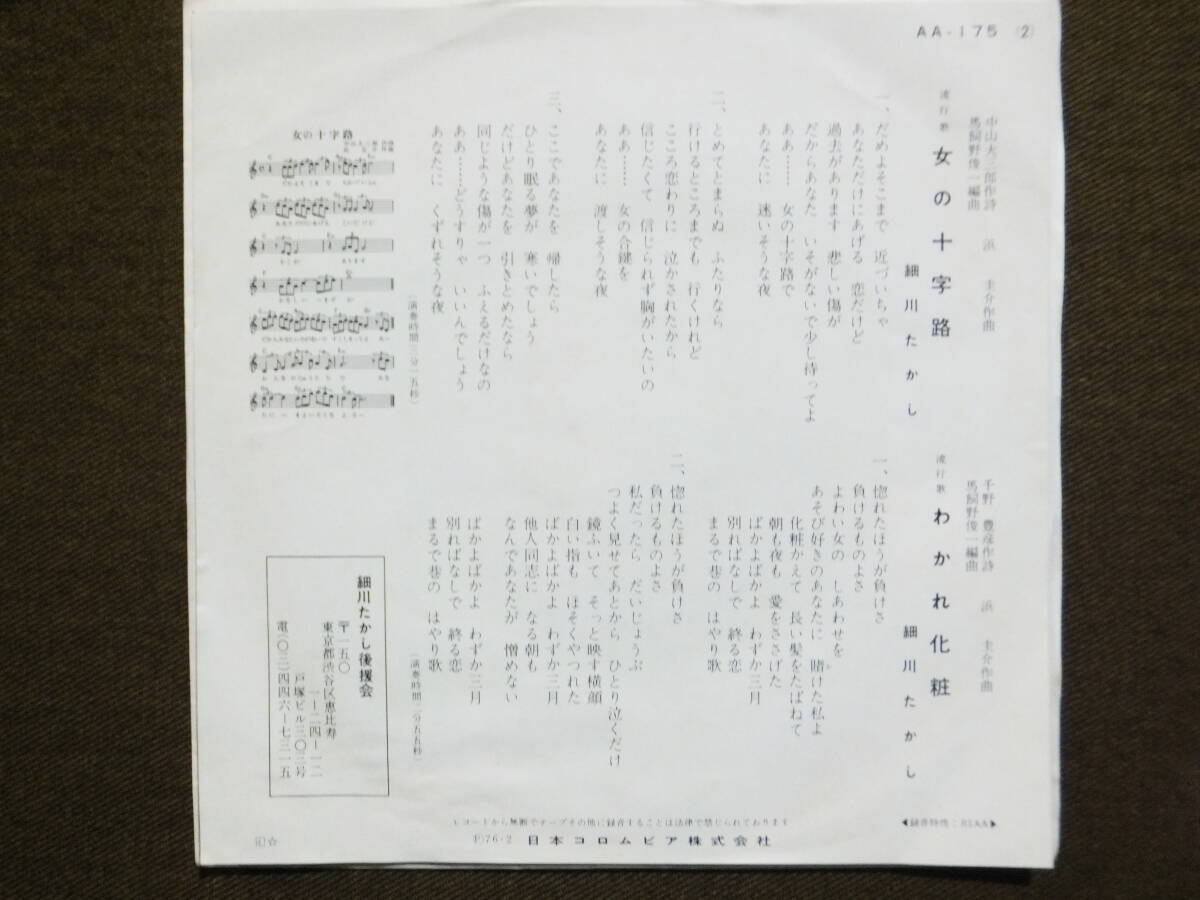 AA-175 (2)
流行歌 女の十字路
中山大三郎作詩
浜 圭介作曲
馬飼野俊一編曲
細川たかし
一、だめよそこまで 近づいちゃ
あなただけにあげる 恋だけど
過去があります 悲しい傷が
だからあなた いそがないで少し待ってよ
ああ…… 女の十字路で
あなたに 迷いそうな夜
二、とめてとまらぬ ふたりなら
行けるところまでも 行くけれど
こころ恋わりに 泣かされたから
信じたくて 信じられず胸がいたいの
ああ…… 女の合鍵を
あなたに 渡しそうな夜
三、ここであなたを 帰したら
ひとり眠る夢が 寒いでしょう
だけどあなたを 引きとめたなら
同じような傷が一つ ふえるだけなの
ああ……どうすりゃ いいんでしょう
あなたに くずれそうな夜
(演奏時間三分一五秒)
女の十字路
流行歌 わかれ化粧
千野 豊彦作詩
浜 圭介作曲
馬飼野俊一編曲
細川たかし
一、惚れたほうが負けさ
負けるものよさ
よわい女の しあわせを
あそび好きのあなたに 賭けた私よ
化粧かえて 長い髪をたばねて
朝も夜も 愛をささげた
ばかよばかよ わずか三月
別ればなしで 終る恋
まるで巷の はやり歌
二、惚れたほうが負けさ
負けるものよさ
私だったら だいじょうぶ
つよく見せてあとから ひとり泣くだけ
鏡ふいて そっと映す横顔
白い指も ほそくやつれた
ばかよばかよ わずか三月
他人同志に なる朝も
なんであなたが 憎めない
ばかよばかよ わずか三月
別ればなしで 終る恋
まるで巷の はやり歌
(演奏時間二分五五秒)
細川たかし後援会
〒一五〇
東京都渋谷区恵比寿
一ー二四ー一二
戸塚ビル三〇三号
電(〇三)四四六ー七三一五
レコードから無断でテープその他に録音することは法律で禁じられております
◀録音特性:RIAA▶
Ⓟ76・2 日本コロムビア株式会社